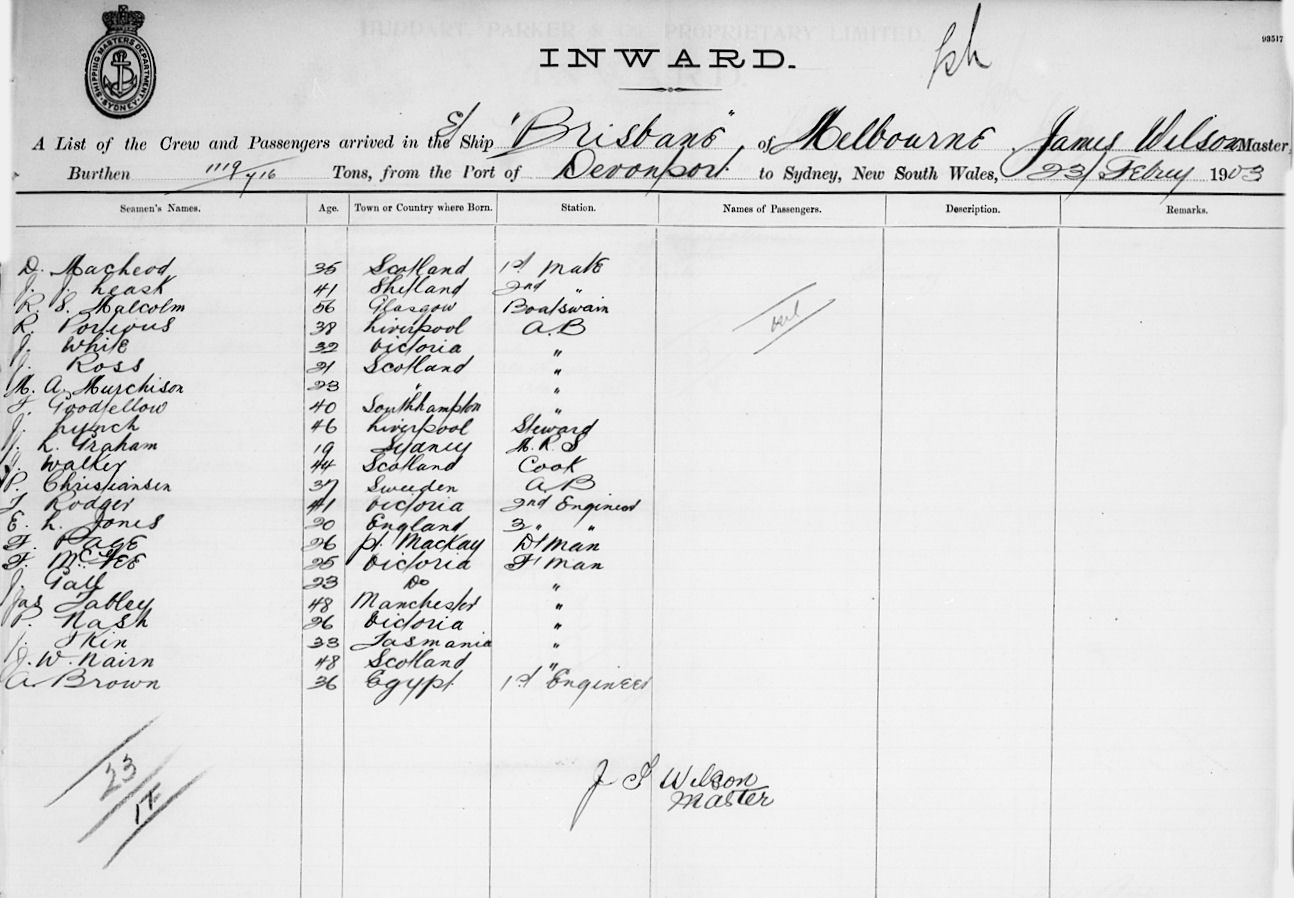 SHIPPING MASTERS DEPARTMENT. SYDNEY
HUDDART, PARKER & Co. PROPRIETARY LIMITED.
93517
INWARD.
A List of the Crew and Passengers arrived in the S/ Ship "Brisbane" of Melbourne James Wilson Master,
Burthen 1119 Tons, from the Port of Devonport to Sydney, New South Wales, 23/ Febuy 1903
Seamen's Names. Age. Town or Country where Born. Station. Names of Passengers. Description. Remarks.
D. Macleod 35 Scotland 1st Mate
J. J. Leask 41 Shetland 2nd "
R. S. Malcolm 56 Glasgow Boatswain
R. Porteous 38 Liverpool A.B
J. White 32 Victoria "
J. Ross 21 Scotland "
M. A. Murchison 23 " "
F. Goodfellow 40 Southhampton "
J. Lynch 46 Liverpool Steward
L. Graham 19 Sydney M.R.S
Walker 44 Scotland Cook
P. Christiansen 37 Sweden A.B
Rodger 41 Victoria 2nd Engineer
E. L. Jones 20 England 3 " "
F. Page 26 Pt. Mackay D'Man
F. McFee 25 Victoria F'Man
J. Gall 23 Do "
Jas Tabley 48 Manchester "
P. Nash 26 Victoria "
Skin 33 Tasmania "
J. W. Nairn 48 Scotland "
A. Brown 36 Egypt 1st Engineer
23
J Wilson
Master